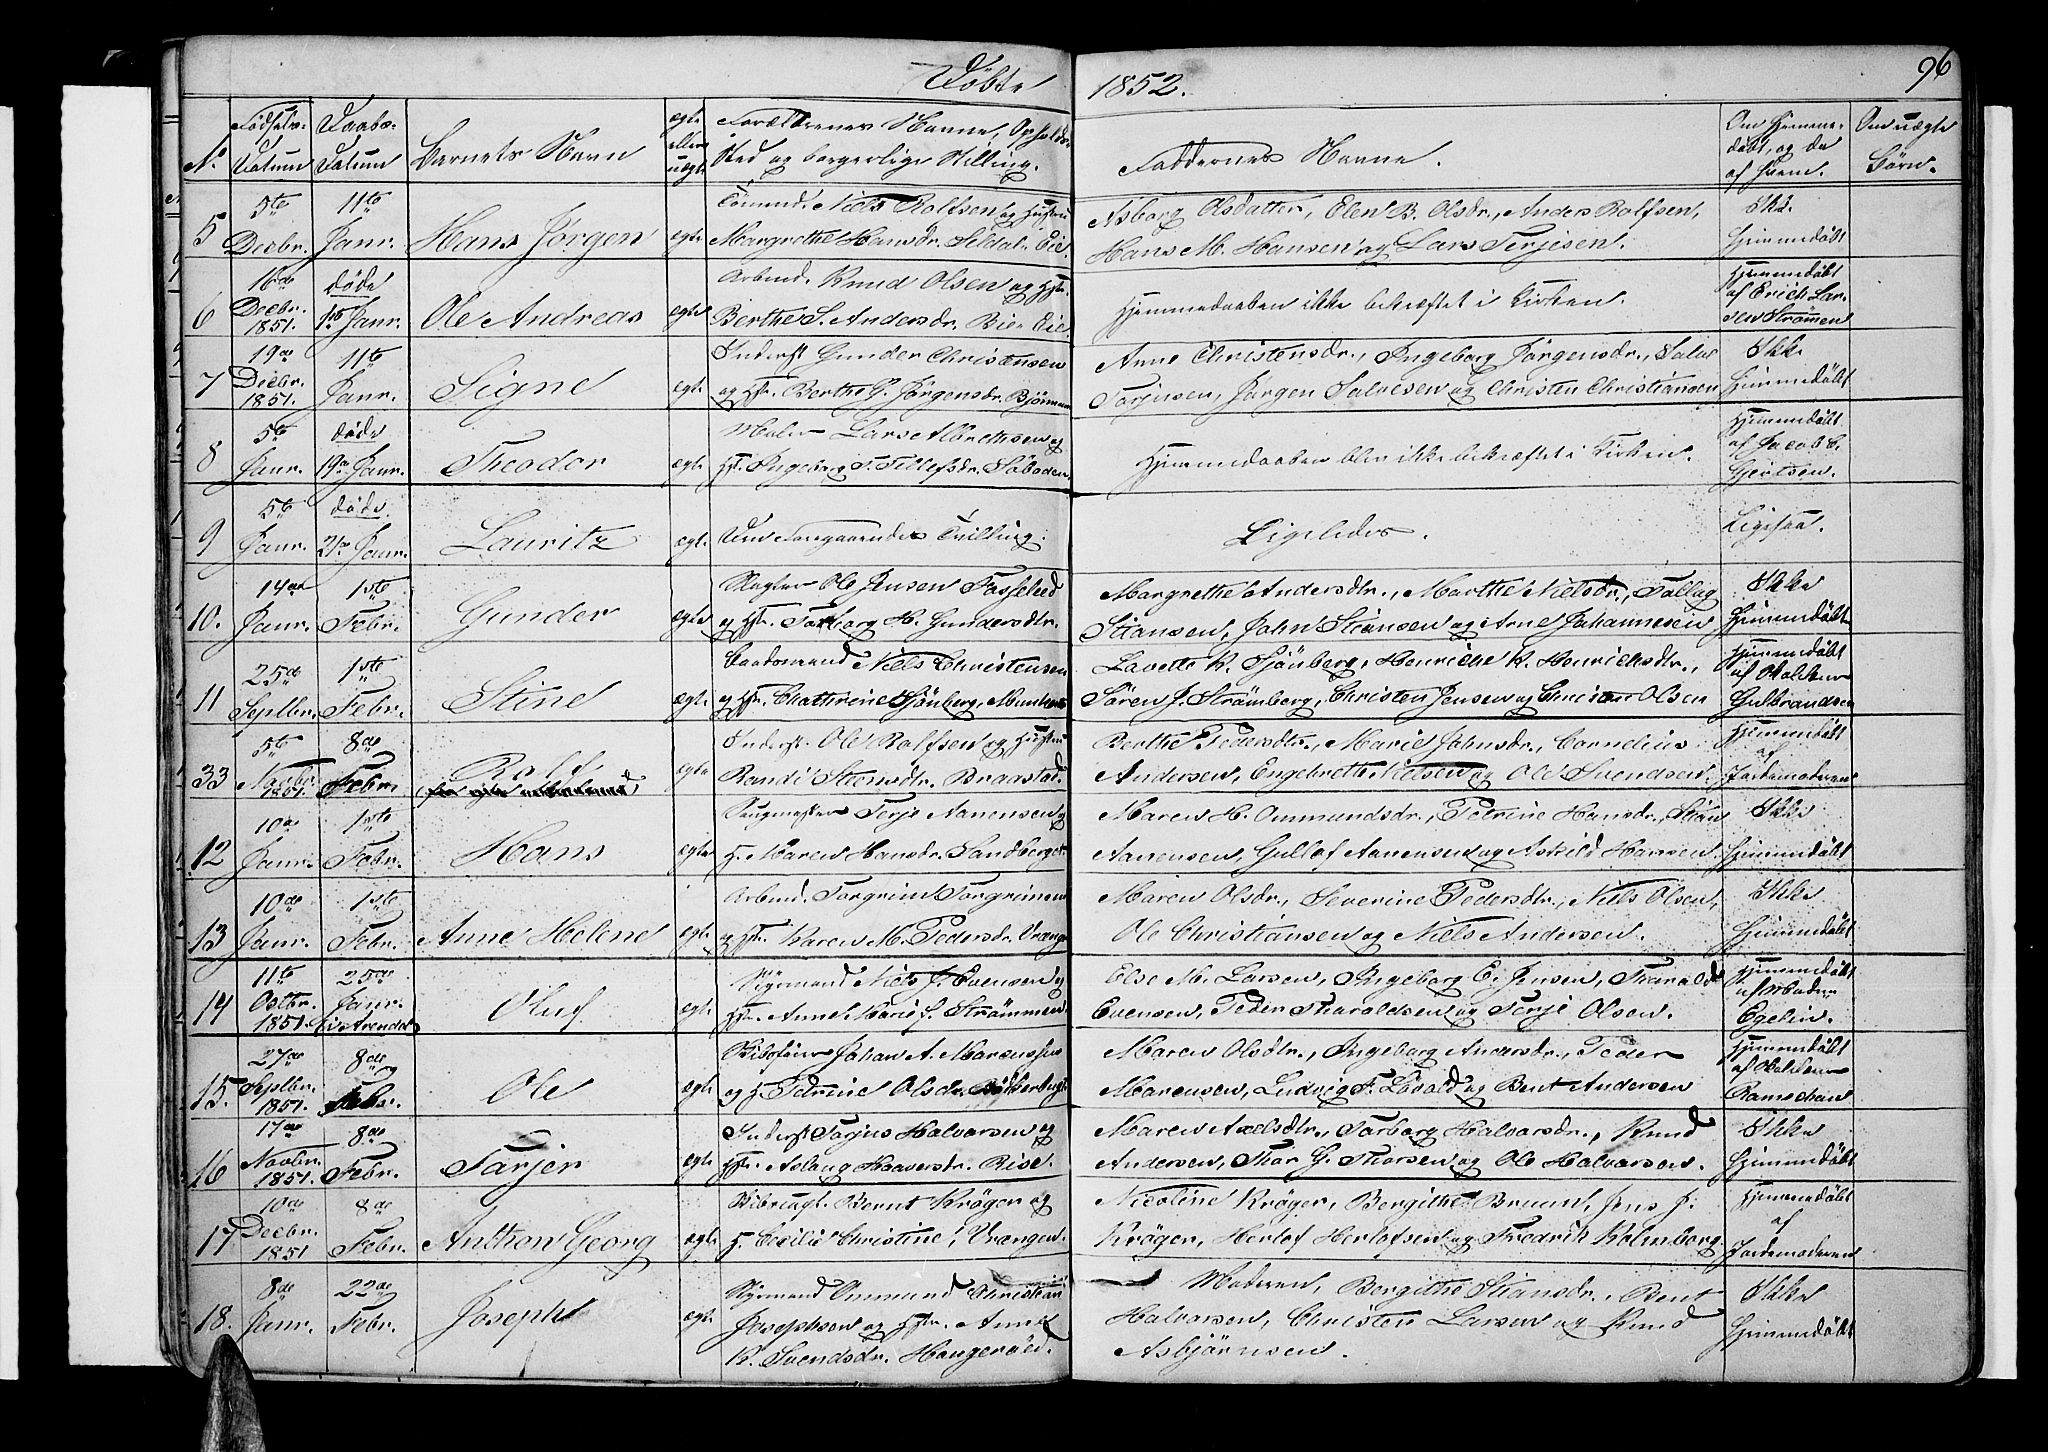 Døbte
1852.
96
No
Fødsels-Datum
Daabs-Datum
Barnets Navn
ægte eller uægte
Forældrenes Navne, Opholds-
Sted og borgerlige Stilling.
Faddernes Navne.
Om Hjemme-
døbt, og da
af hvem.
Om uægte
Børn.
5 5te Decbr. 11te Janr. Hans Jørgen ægte
Niels Rolfsen og Hustru
Margrethe Hansdr. Seldal Eie.
Asborg Olsdatter, Elen B. Olsdr., Anders Rolfsen,
Hans M. Hansen og Lars Terjesen.
Ikke
Hjemmedøbt
6 16de Decbr. 1851. døde 1ste Janr. Ole Andreas ægte
Arbmd. Knud Olsen og Hstr.
Berthe S. Andersdr. Bie Eie
Hjemmedaaben ikke bekræftet i Kirken.
Hjemmedøbt
af Erich Lar-
sen Strømmen
7 19de Decbr. 1851. 11te Janr. Signe ægte
Inderst Gunder Christensen
og Hstr. Berthe G. Jørgensdr. Bjørnum
Anne Christensdr., Ingeborg Jørgensdr., Salve
Torjusen, Jørgen Salvesen og Christen Christiansen
Ikke
Hjemmedøbt
8 5te Janr. døde 19de Janr. Theodor ægte
Maler Lars Albrethsen og
Hst. Ingeborg T. Tellefsdr. Søboden
Hjemmedaaben blev ikke bekræftet i Kirken.
Hjemmedøbt
af Jacob C.
Gjertsen.
9 5te Janr. døde 21de Janr. Lauritz ægte
Den Foregaaendes Tvilling.
Ligeledes.
Ligesaa.
10. 14de Janr. 1ste Febr. Gunder ægte
Ole Jensen
og Hstr. Torborg H. Gundersdtr.
Margrethe Andersdtr., Marthe Nielsdr., Tallag
Stiansen, John Stiansen og Arne Johannesen
Ikke
Hjemmedøbt
11 25de Septbr. 1ste Febr. Stine ægte
Baadsmand Niels Christensen
og Hstr. Chathrine Sjönberg,
Lavette K. Sjönberg, Henriche K. Henrichsdtr.,
Søren J. Strömberg, Christen Jensen og Christen Olsen
Hjemmedøbt
Gulbrandsen
33 5te Novbr. 1851. 8de Febr. Rolf ægte
Inderst. Ole Rolfsen og Hustru
Randi Stensdtr. Braastad.
Berthe Pedersdtr., Marie Johnsdr., Cornelius
Andersen, Engebreth Nielsen og Ole Svendsen
Hjemmedøbt
af
Jordemoderen
12 10de Janr. 1ste Febr. Hans ægte
Terje Aanensen og
H. Maren Hansdr. Sandberget.
Maren H. Ommundsdr., Petrine Hansdr., Stian
Aanensen, Gullof Aanensen og Askild Hansen
Ikke
Hjemmedøbt
13 10de Janr. 1ste Febr. Anne Helene ægte
Arbmd. Torgrim Torgrimsen
og Hstr. Karen M. Pedersdr. Vrænge
Maren Olsdr., Severine Pedersdtr., Niels Olsen,
Ole Christiansen og Niels Andersen.
Ikke
Hjemmedøbt
14 11te Octbr. 1851. 25de Janr. i Arendal Oluf ægte
Styrmand Niels J. Evensen og
Hstr. Anne Marie f. Strømmen
Else M. Larsen, Ingeborg E. Jensen, Tharald
Evensen, Peder Tharaldsen og Terje Olsen.
Hjemmedøbt
af
15. 27de Septbr. 1851. 8de Febr. Ole ægte
Johan A.
og H. Petrine Olsdr.
Maren Olsdtr., Ingeborg Andersdr., Peder
Marensen, Ludvig F. Lövold og Bent Andersen
Hjemmedøbt
16 17de Novbr. 1851. 8de Febr. Tarjer ægte
Inderst Torjus Halvorsen og
Hstr. Aslaug Haaversdr. Rise.
Maren Axelsdtr., Torborg Halvorsdr., Knud
Andersen, Thor G. Thorsen og Ole Halvorsen.
Ikke
Hjemmedøbt
17 10de Decbr. 1851 8de Febr. Anthon Georg ægte
Bernt Krøger og
H. Cecilie Christine, Vrængen.
Nicoline Krøger, Bergithe Bruun, Jens J.
Krøger, Herlof Herlofsen og Fredrik Holmberg.
Hjemmedøbt
af
Jordemoderen
18. 8de Janr. 22de Febr. Joseph ægte
Styrmand Ommund Christian
Josephsen og Hstr. Anne
K. Svendsdr. Haugerøed.
Moderen, Bergithe Stiansdr., Bent
Halvorsen, Christen Larsen og Knud
Asbjørnsen.
Ikke
Hjemmedøbt